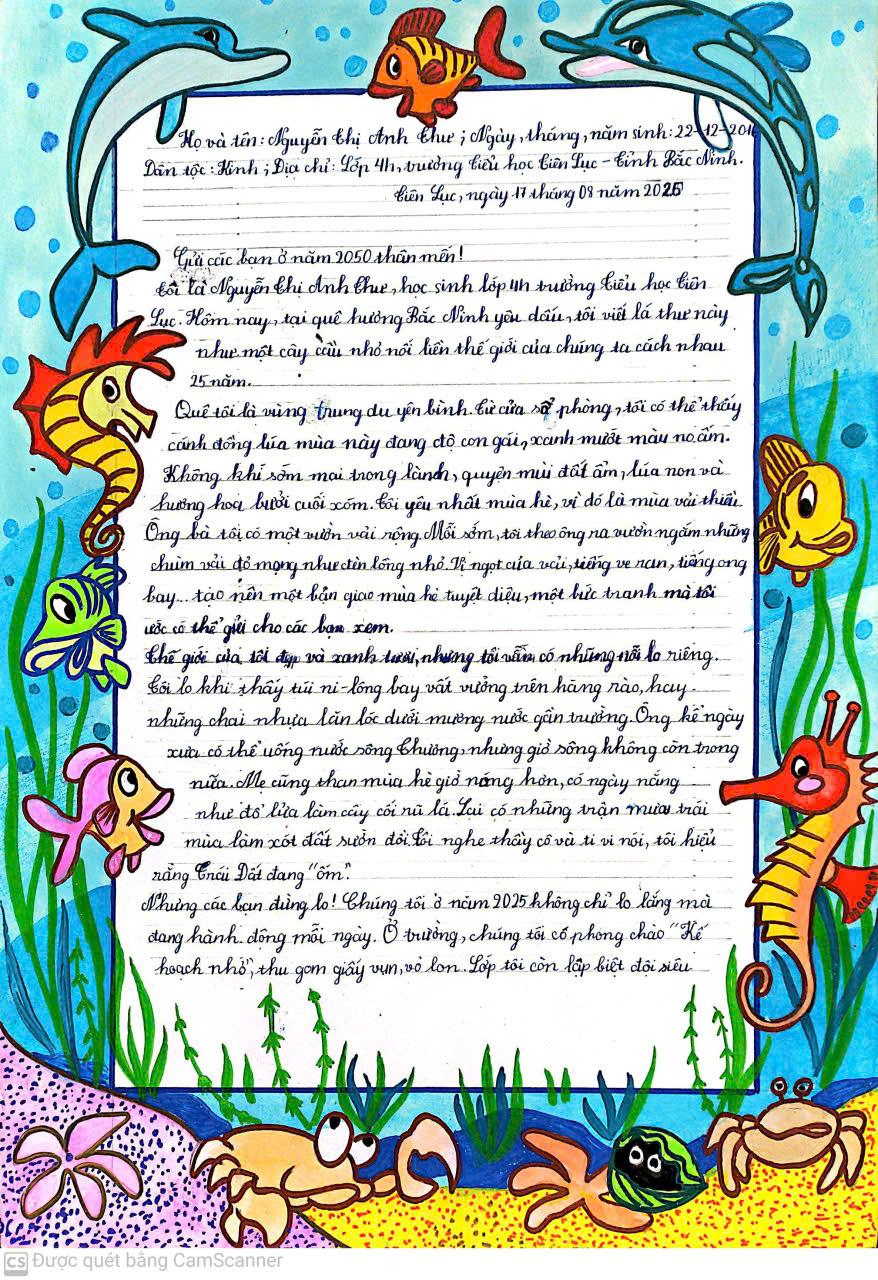 Họ và tên: Nguyễn Thị Anh Thư; Ngày, tháng, năm sinh: 22-12-201
Dân tộc: Kinh; Địa chỉ: Lớp 4h, trường Tiểu học Tiên Lục - Tỉnh Bắc Ninh.
Tiên Lục, ngày 17 tháng 08 năm 2025
Gửi các bạn ở năm 2050 thân mến!
Tôi là Nguyễn Thị Anh Thư, học sinh lớp 4h trường Tiểu học Tiên
Lục. Hôm nay, tại quê hương Bắc Ninh yêu dấu, tôi viết lá thư này
như một cây cầu nhỏ nối liền thế giới của chúng ta cách nhau
25 năm.
Quê tôi là vùng trung du yên bình. Từ cửa sổ phòng, tôi có thể thấy
cánh đồng lúa mùa này đang độ con gái, xanh mướt màu no ấm.
Không khí sớm mai trong lành, quyện mùi đất ẩm, lúa non và
hương hoa bưởi cuối xóm. Tôi yêu nhất mùa hè, vì đó là mùa vải thiều.
Ông bà tôi có một vườn vải rộng. Mỗi sớm, tôi theo ông ra vườn ngắm những
chùm vải đỏ mọng như đèn lồng nhỏ. Vị ngọt của vải, tiếng ve ran, tiếng ong
bay... tạo nên một bản giao mùa hè tuyệt diệu, một bức tranh mà tôi
ước có thể gửi cho các bạn xem.
Thế giới của tôi đẹp và xanh tươi, nhưng tôi vẫn có những nỗi lo riêng.
Tôi lo khi thấy túi ni-lông bay vất vưởng trên hàng rào, hay
những chai nhựa lăn lóc dưới mương nước gần trường. Ông kể ngày
xưa có thể uống nước sông Thương, nhưng giờ sông không còn trong
nữa. Mẹ cũng than mùa hè giờ nóng hơn, có ngày nắng
như đổ lửa làm cây cối rũ lá. Lại có những trận mưa trái
mùa làm xót đất sườn đồi. Tôi nghe thầy cô và ti vi nói, tôi hiểu
rằng Trái Đất đang "ốm".
Nhưng các bạn đừng lo! Chúng tôi ở năm 2025 không chỉ lo lắng mà
đang hành động mỗi ngày. Ở trường, chúng tôi có phong chào "Kế
hoạch nhỏ", thu gom giấy vụn, vỏ lon. Lớp tôi còn lập biệt đội siêu
CS Được quét bằng CamScanner